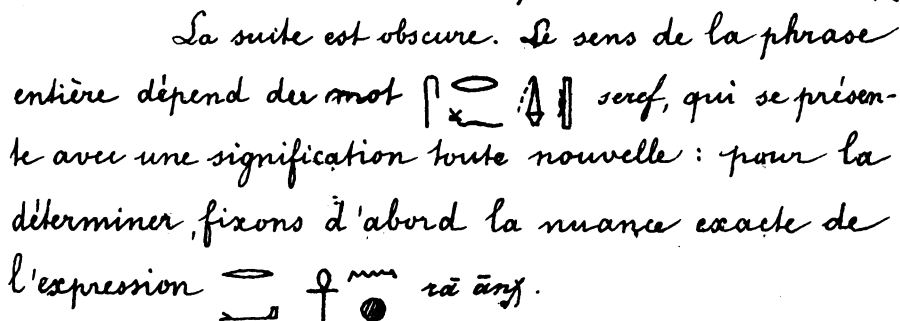 La suite est obscure. Le sens de la phrase
entière dépend du mot 𓋴𓂋𓆑 seref, qui se présen-
te avec une signification toute nouvelle : pour la
déterminer, fixons d'abord la nuance exacte de
l'expression 𓂋𓂝 𓋹𓈖𓐍 rā ānχ.